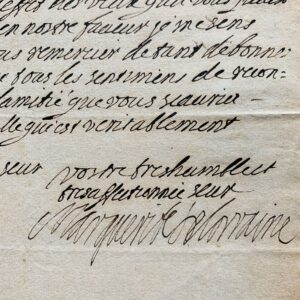 que vous
en nostre faveur je me sens
vous remercier de tant de bon
tous les sentimens de recon
lamitié que vous scauriez
lle qui est veritablement
seur vostre treshumble et
tresaffectionnée seur
Marguerite de lorraine